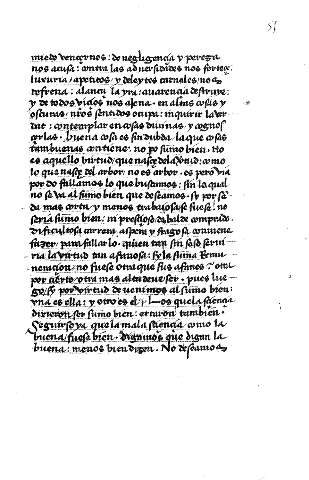 51
miedo vencernos: do negligencia y pereza
nos acusa: contra las adversidades nos fortez
luxuria, apetitos, y deleytes carnales nos
refrena: alança la yra: avarencia destruye:
y de todos vicios nos alexa. en altas cosas y
escuras, nros sentidos ocupa: inquirir la ver
dat: contemplar en cosas divinas, y cognos
cerlas. buena cosa es sin dubda la que cosas
tambuenas contiene. no po sumo bien. No
es aquello virtud, que nasce dela virtud: como
lo que nasce del arbor, no es arbor. es pero via
por do fallamos lo que buscamos: sin la qual
no se va al sumo bien que deseamos. Si por se
da mas corta y menos trabajosa se fuese: no
seria sumo bien: ni prestioso, de balde comprado.
Dificultosa carrera, aspera y fragosa conviene
fazer, para fallarlo. quien tan sin seso servi
ria la virtud tan afanosa: si la suma remu
neracion, no fuese otra que sus afanes? otra
por cierto, otra mas alta deve ser. pues lue
go, si por virtud de venimos al sumo bien:
una es ella: y otro es el. Los que la sciencia
dixieron ser sumo bien: erraron tambien.
Seguirse ya que la mala sciencia como la
buena fuese bien. digamos que digan la
buena: menos bien dizen. No deseamos